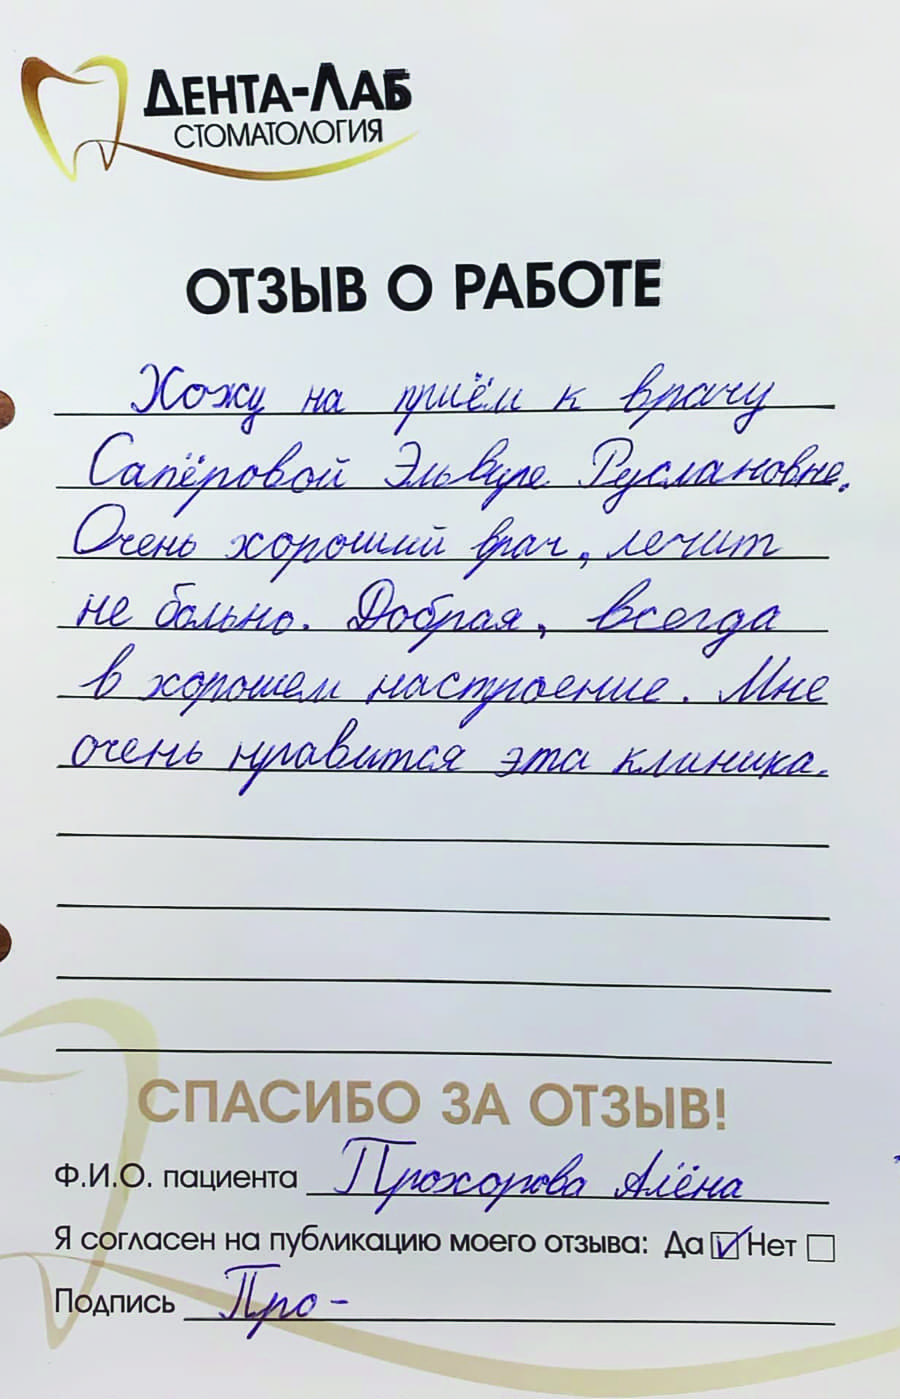 ДЕНТА-ЛАБ
СТОМАТОЛОГИЯ
ОТЗЫВ О РАБОТЕ
Хожу на приём к врачу
Сапёровой Эльвире Руслановне.
Очень хороший врач, лечит
не больно. Добрая, всегда
в хорошем настроение. Мне
очень нравится эта клиника.
СПАСИБО ЗА ОТЗЫВ!
Ф.И.О. пациента Прохорова Алёна
Я согласен на публикацию моего отзыва: Да Нет
Подпись Про-